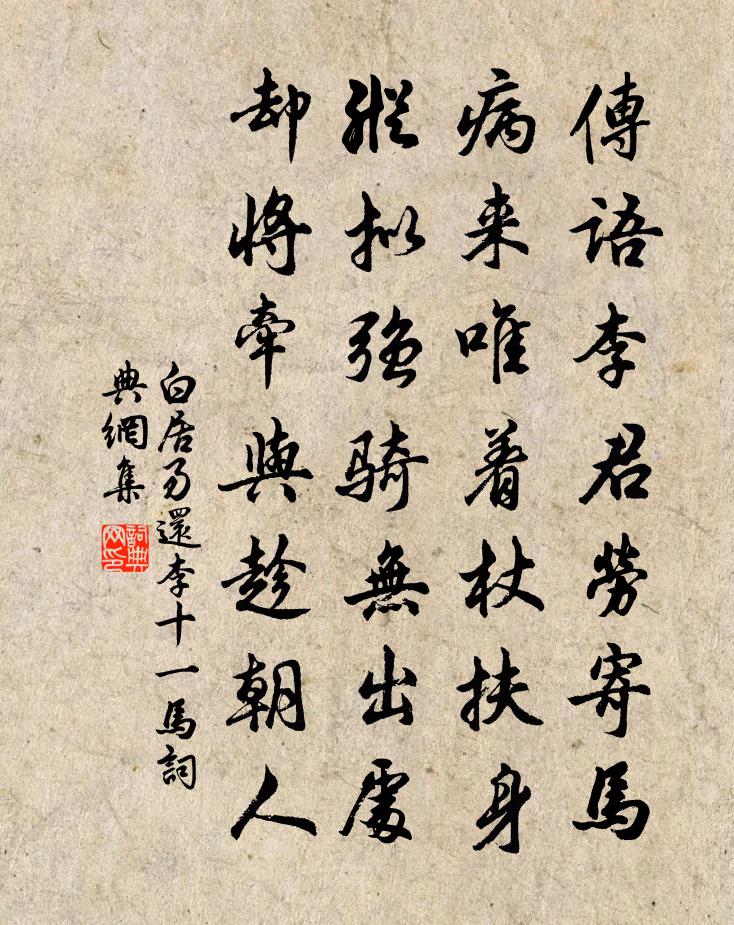 傳語李君勞寄馬
病来唯着杖扶身
縱拟強騎無出處
却將牽與趁朝人
白居易還李十一馬詞
典網集
詞典网印